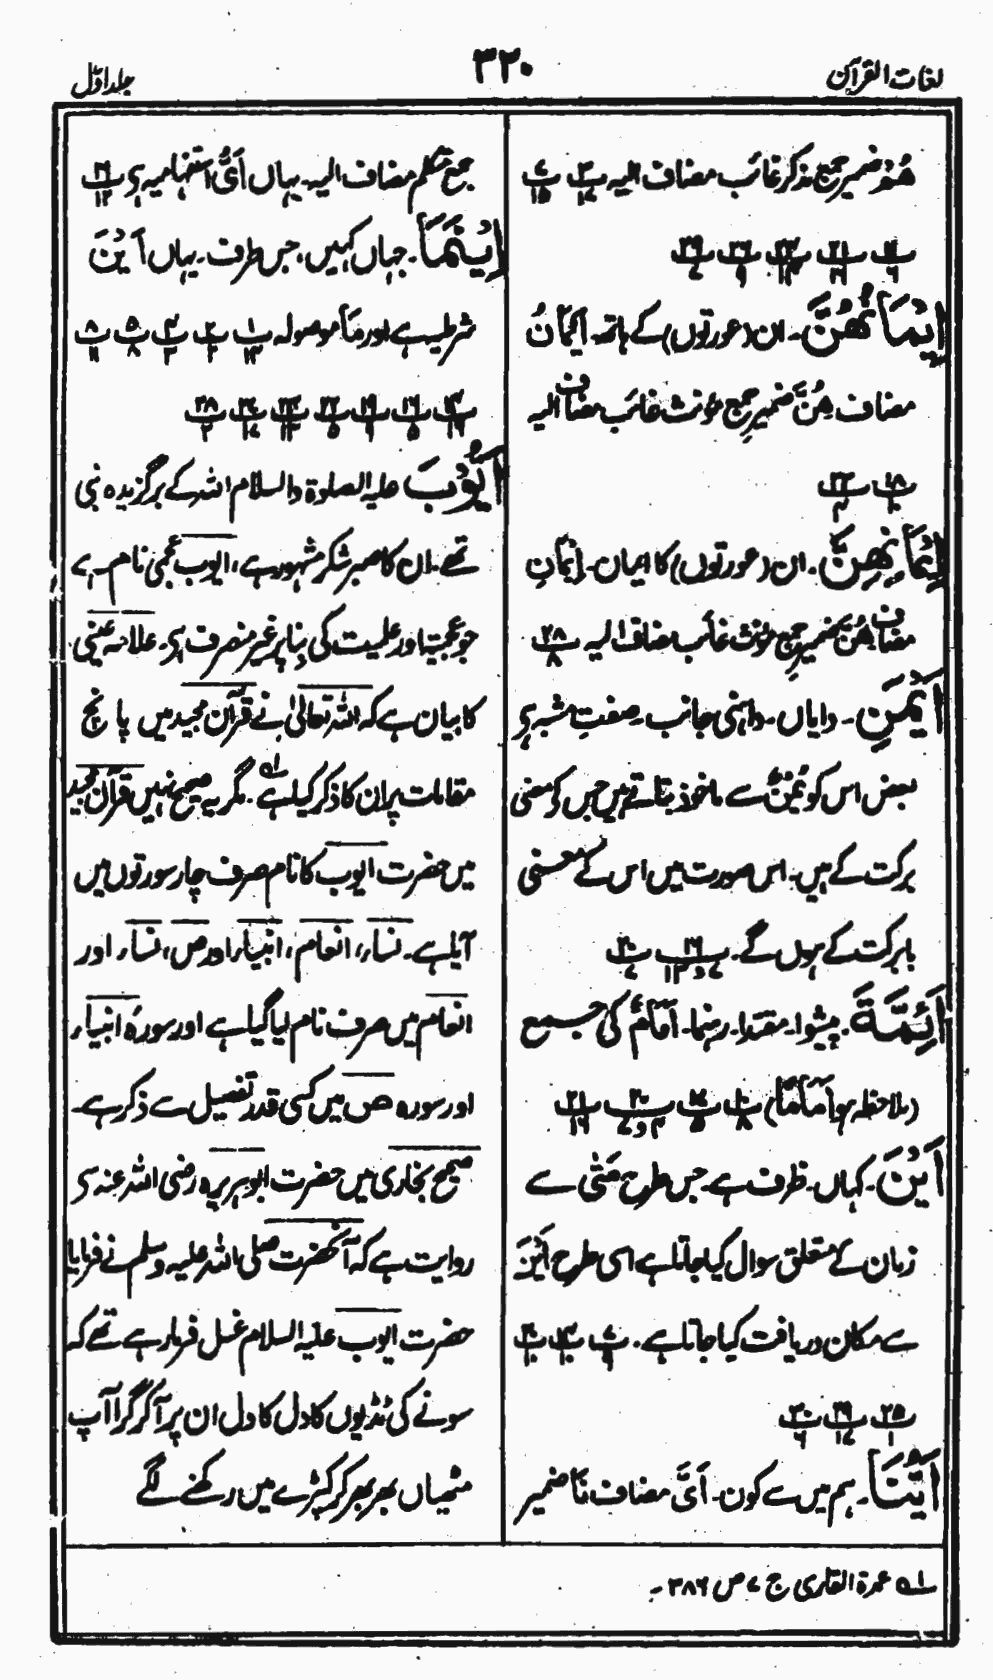 لغات القرآن
۳۲۰
جلد اوّل
هُمْ ضمیر جمع مذکر غائب مضاف الیہ
اَیْمَانُهُنَّ۔ ان (عورتوں) کے ہاتھ۔ اَیْمَانُ
مضاف هُنَّ ضمیر جمع مؤنث غائب مضاف الیہ
۱۸ ۲۲
اِیْمَانِهِنَّ۔ ان (عورتوں) کا ایمان۔ اِیْمَانِ
مضاف هِنَّ ضمیر جمع مؤنث غائب مضاف الیہ ۲۸/۸
اَیْمَنِ۔ دایاں۔ داہنی جانب۔ صفتِ مشبہ ہے
بعض اس کو یُمْنٌ سے ماخوذ بتاتے ہیں جس کے معنی
برکت کے ہیں۔ اس صورت میں اس کے معنی
بابرکت کے ہوں گے۔
اَئِمَّةَ۔ پیشوا۔ مقتدا۔ رہنما۔ اِمَامٌ کی جمع
(ملاحظہ ہو اِمَامًا)
اَیْنَ۔ کہاں۔ ظرف ہے۔ جس طرح مَتٰی سے
زمان کے متعلق سوال کیا جاتا ہے اسی طرح اَیْنَ
سے مکان دریافت کیا جاتا ہے۔
۲۵/۱ ۲۹/۱۷ ۳۰/۶
اَیُّنَا۔ ہم میں سے کون۔ اَیَّ مضاف نَا ضمیر
جمع متکلم مضاف الیہ۔ یہاں اَیُّ استفہامیہ ہے
اَیْنَمَا۔ جہاں کہیں، جس طرف۔ یہاں اَیْنَ
شرطیہ ہے اور مَا موصولہ
اَیُّوْبَ علیہ الصلوۃ والسلام اللہ کے برگزیدہ نبی
تھے۔ ان کا صبر شکر مشہور ہے، ایوب عجمی نام ہے
جو عجمیت اور علمیت کی بنا پر غیر منصرف ہے۔ علامہ عینی
کا بیان ہے کہ اللہ تعالیٰ نے قرآن مجید میں پانچ
مقامات پر ان کا ذکر کیا ہے لہ۔ مگر یہ صحیح نہیں قرآن مجید
میں حضرت ایوب کا نام صرف چار سورتوں میں
آیا ہے۔ نساء، انعام، انبیاء اور ص، نساء، اور
انعام میں صرف نام لیا گیا ہے اور سورہ انبیاء،
اور سورہ ص میں کسی قدر تفصیل سے ذکر ہے۔
صحیح بخاری میں حضرت ابو ہریرہ رضی اللہ عنہ سے
روایت ہے کہ آنحضرت صلی اللہ علیہ وسلم نے فرمایا
حضرت ایوب علیہ السلام غسل فرما رہے تھے کہ
سونے کی ٹڈیوں کا دل کا دل ان پر آکر گرا آپ
مٹھیاں بھر بھر کر کپڑے میں رکھنے لگے
لہ عمدۃ القاری ج ۷ ص ۳۸۶۔